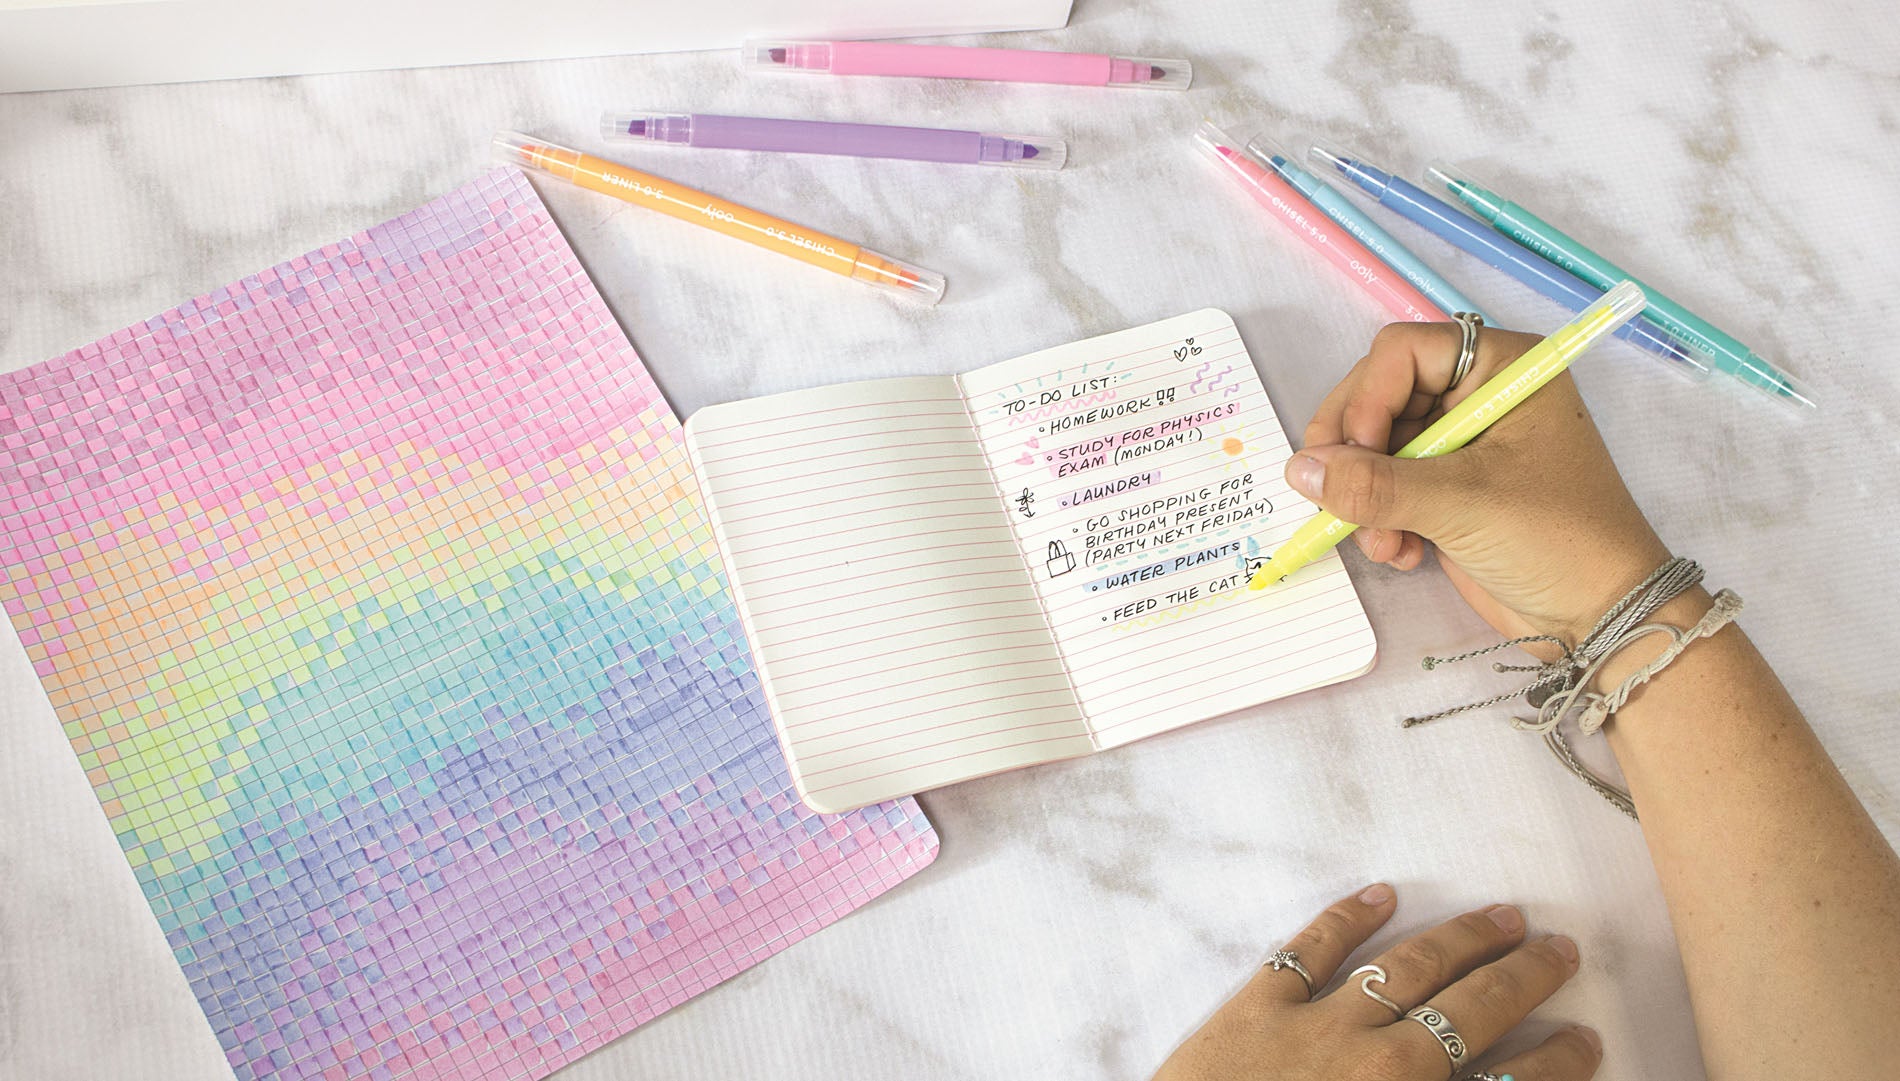 3.0 LINER
ooly
CHISEL 5.0
CHISEL 5.0
ooly
5.0
CHISEL 5.0
ooly
CHISEL 5.0
1.0 LINER
CHISEL 5.0
TO-DO LIST:
• HOMEWORK !!
• STUDY FOR PHYSICS
EXAM (MONDAY!)
• LAUNDRY
• GO SHOPPING FOR
BIRTHDAY PRESENT
(PARTY NEXT FRIDAY)
• WATER PLANTS
• FEED THE CAT